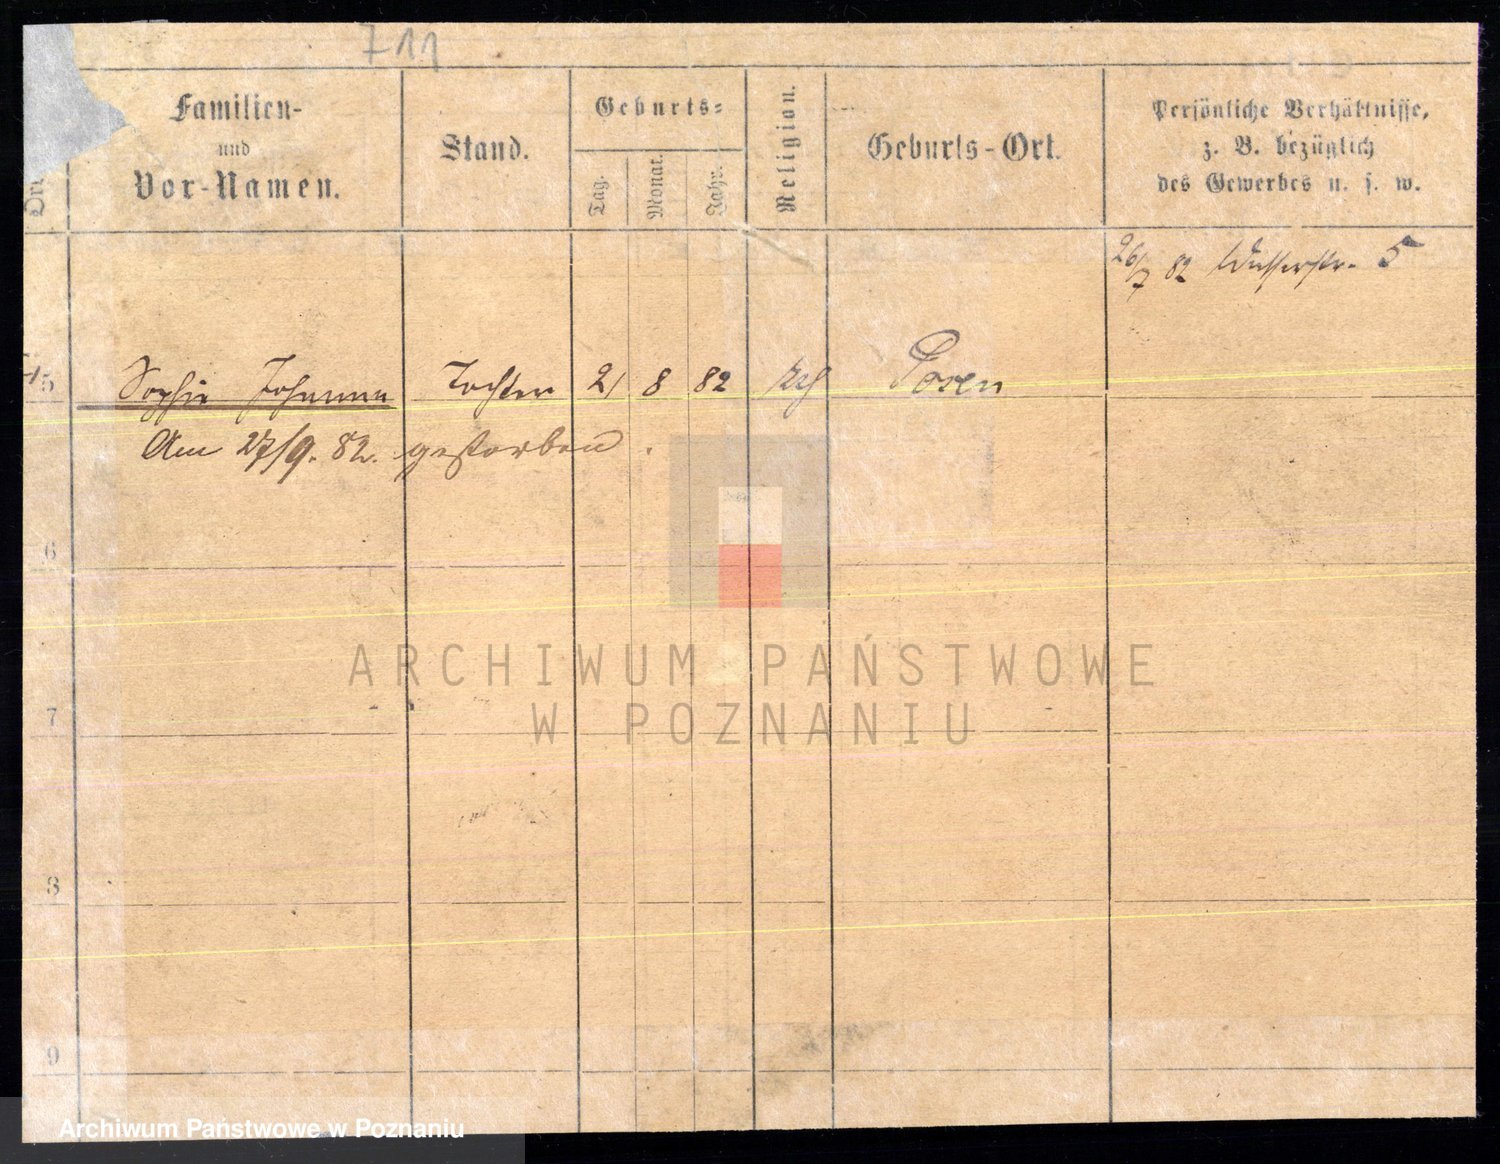 711
Familien-
und
Vor-Namen.
Stand.
Geburts-
Tag.
Monat.
Jahr.
Religion.
Geburts-Ort.
Persönliche Verhältnisse,
z. B. bezüglich
des Gewerbes u. s. w.
26/7 82 Wasserstr. 5
5 Sophie Johanna Tochter 21 8 82 Posen
Am 27/9. 82. gestorben.
6
7
8
9
ARCHIWUM PAŃSTWOWE
W POZNANIU
Archiwum Państwowe w Poznaniu